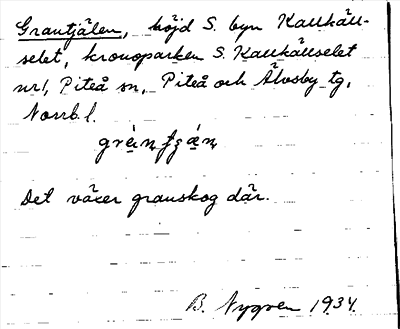 Grantjälen, höjd S. byn Kallkäll-
selet, kronoparken S. Kallkällselet
nr1, Piteå sn, Piteå och Älvsby tg,
Norrb. l.
Det växer granskog där.
B. Nygren 1934.